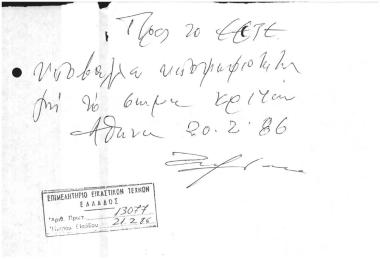 Προς το ΕΕΤΕ
Υποβάλλω υποψηφιότητα
για το σώμα κριτών
Αθήνα 20.2.86
ΕΠΙΜΕΛΗΤΗΡΙΟ ΕΙΚΑΣΤΙΚΩΝ ΤΕΧΝΩΝ
ΕΛΛΑΔΟΣ
Αριθ. Πρωτ. 13077
21.2.86